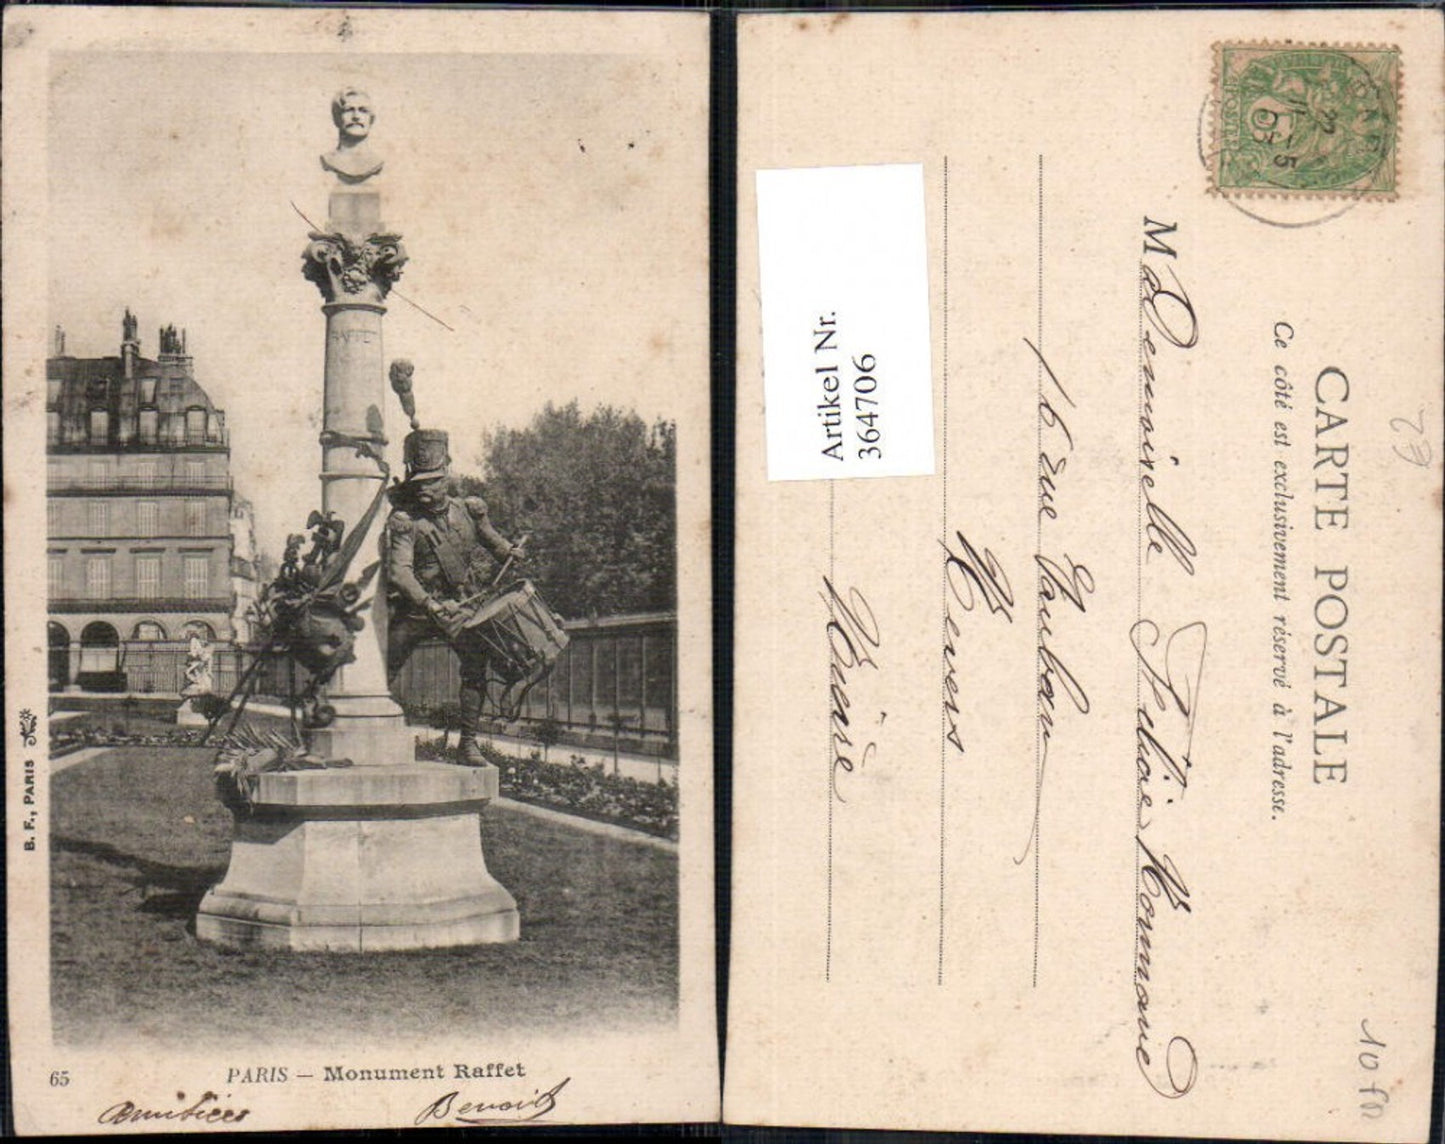 RAFFET
B. F., PARIS
65
PARIS — Monument Raffet
Amitiés
Benoit
CARTE POSTALE
Ce côté est exclusivement réservé à l'adresse.
MaDemoiselle
16 rue Vauban
Nevers
Nièvre
Artikel Nr.
364706
POSTES
5
PARIS
22
23